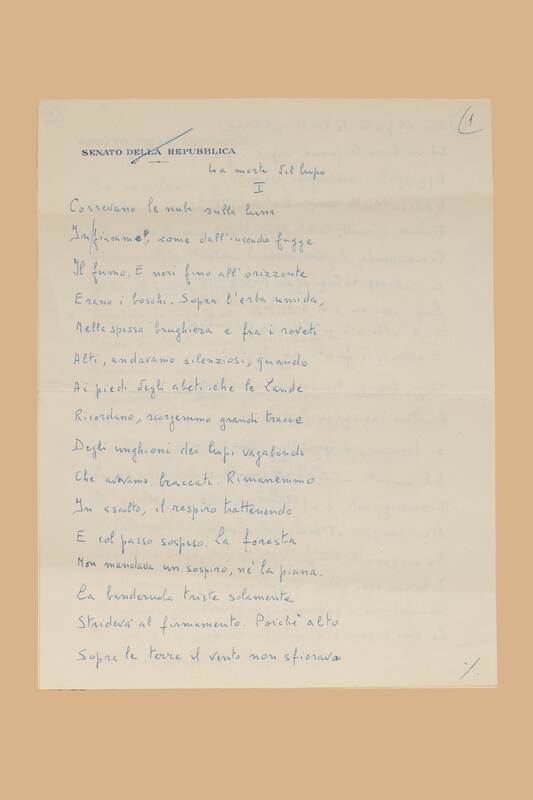 1
SENATO DELLA REPUBBLICA
La morte del lupo
I
Correvano le nubi sulla luna
Infiamme, come dall'incendio fugge
Il fumo. E neri fino all'orizzonte
Erano i boschi. Sopra l'erba umida,
Nella spessa brughiera e fra i roveti
Alti, andavamo silenziosi, quando
Ai piedi degli abeti che le Lande
Ricordano, scorgemmo grandi tracce
Degli unghioni dei lupi vagabondi
Che avevamo braccati. Rimanemmo
In ascolto, il respiro trattenendo
E col passo sospeso. La foresta
Non mandava un sospiro, nè la piana.
La banderuola triste solamente
Strideva al firmamento. Poichè alto
Sopra le terre il vento non sfiorava
./.